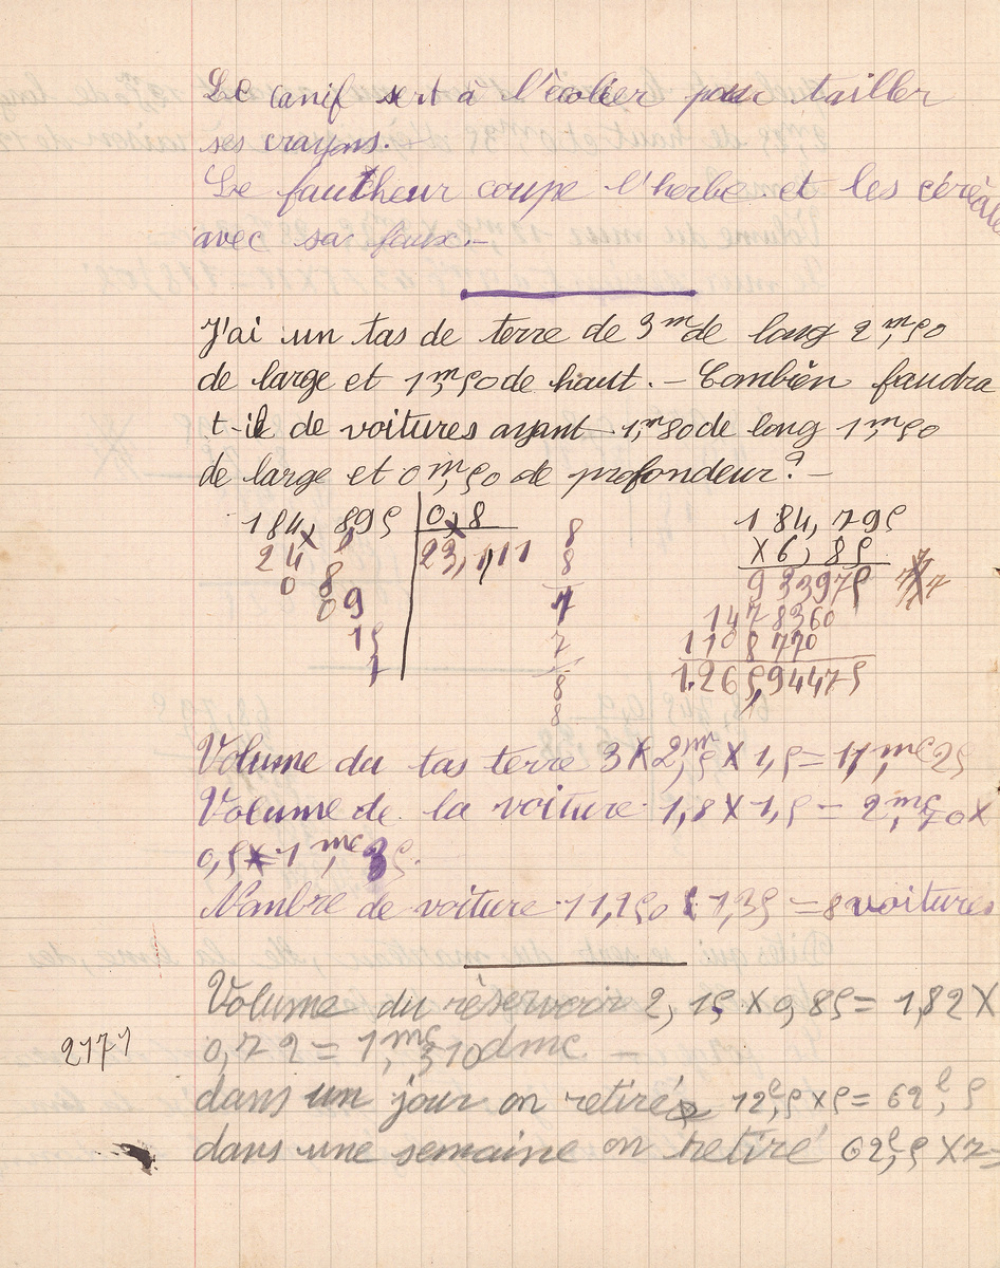 Le canif sert à l'écolier pour tailler
ses crayons.-
Le faucheur coupe l'herbe et les céréales
avec sa faux.-
J'ai un tas de terre de 3m de long 2m,50
de large et 1m,50 de haut. - Combien faudra
t-il de voitures ayant 1m,80 de long 1m,50
de large et 0m,50 de profondeur? -
184,895 0,8 8 184,795
24 8 23,111 8 ×6,85
0 8 7 923975 7 7
09 7 1478360
15 8 1108770
7 8 1.265,94475
Volume du tas terre 3×2,m5×1,5=11,mc25
Volume de la voiture 1,8×1,5=2,mc70×
0,5=1,mc35.
Nombre de voiture 11,250 : 1,35 = 8 voitures
Volume du réservoir 2,15×0,85=1,82×
2171 0,72=1,mc310dmc. -
dans un jour on retire 12l,5×5=62l,5
dans une semaine on retire 62l,5×7=